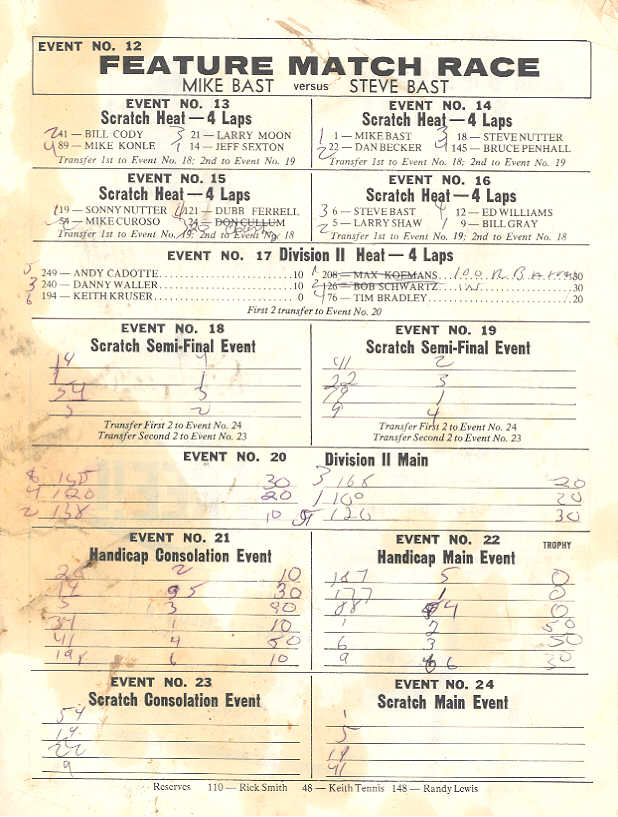 EVENT NO. 12
FEATURE MATCH RACE
MIKE BAST versus STEVE BAST
EVENT NO. 13
Scratch Heat — 4 Laps
2 41 — BILL CODY 3 21 — LARRY MOON
4 89 — MIKE KONLE 1 14 — JEFF SEXTON
Transfer 1st to Event No. 18; 2nd to Event No. 19
EVENT NO. 14
Scratch Heat — 4 Laps
1 1 — MIKE BAST 3 18 — STEVE NUTTER
2 22 — DAN BECKER 4 145 — BRUCE PENHALL
Transfer 1st to Event No. 18; 2nd to Event No. 19
EVENT NO. 15
Scratch Heat — 4 Laps
19 — SONNY NUTTER 121 — DUBB FERRELL
54 — MIKE CUROSO 24 — DON CULLUM
Transfer 1st to Event No. 19; 2nd to Event No. 18
EVENT NO. 16
Scratch Heat — 4 Laps
3 6 — STEVE BAST 4 12 — ED WILLIAMS
2 5 — LARRY SHAW 1 9 — BILL GRAY
Transfer 1st to Event No. 19; 2nd to Event No. 18
EVENT NO. 17 Division II Heat — 4 Laps
5 249 — ANDY CADOTTE 10 1 208 — MAX KOEMANS 100 30
3 240 — DANNY WALLER 10 2 126 — BOB SCHWARTZ 30
6 194 — KEITH KRUSER 0 4 76 — TIM BRADLEY 20
First 2 transfer to Event No. 20
EVENT NO. 18
Scratch Semi-Final Event
14 4
1 1
54 3
5 2
Transfer First 2 to Event No. 24
Transfer Second 2 to Event No. 23
EVENT NO. 19
Scratch Semi-Final Event
41 2
22 3
19 1
9 4
Transfer First 2 to Event No. 24
Transfer Second 2 to Event No. 23
EVENT NO. 20 Division II Main
30 3 168 20
4 120 20 1 100 20
2 138 10 5 120 30
EVENT NO. 21
Handicap Consolation Event
2 10
14 5 30
5 3 90
34 1 10
41 4 50
6 10
EVENT NO. 22
Handicap Main Event
TROPHY
187 5 0
177 1 0
88 4 0
1 2 50
6 3 50
9 6 30
EVENT NO. 23
Scratch Consolation Event
54
14
22
9
EVENT NO. 24
Scratch Main Event
1
5
19
41
Reserves 110 — Rick Smith 48 — Keith Tennis 148 — Randy Lewis